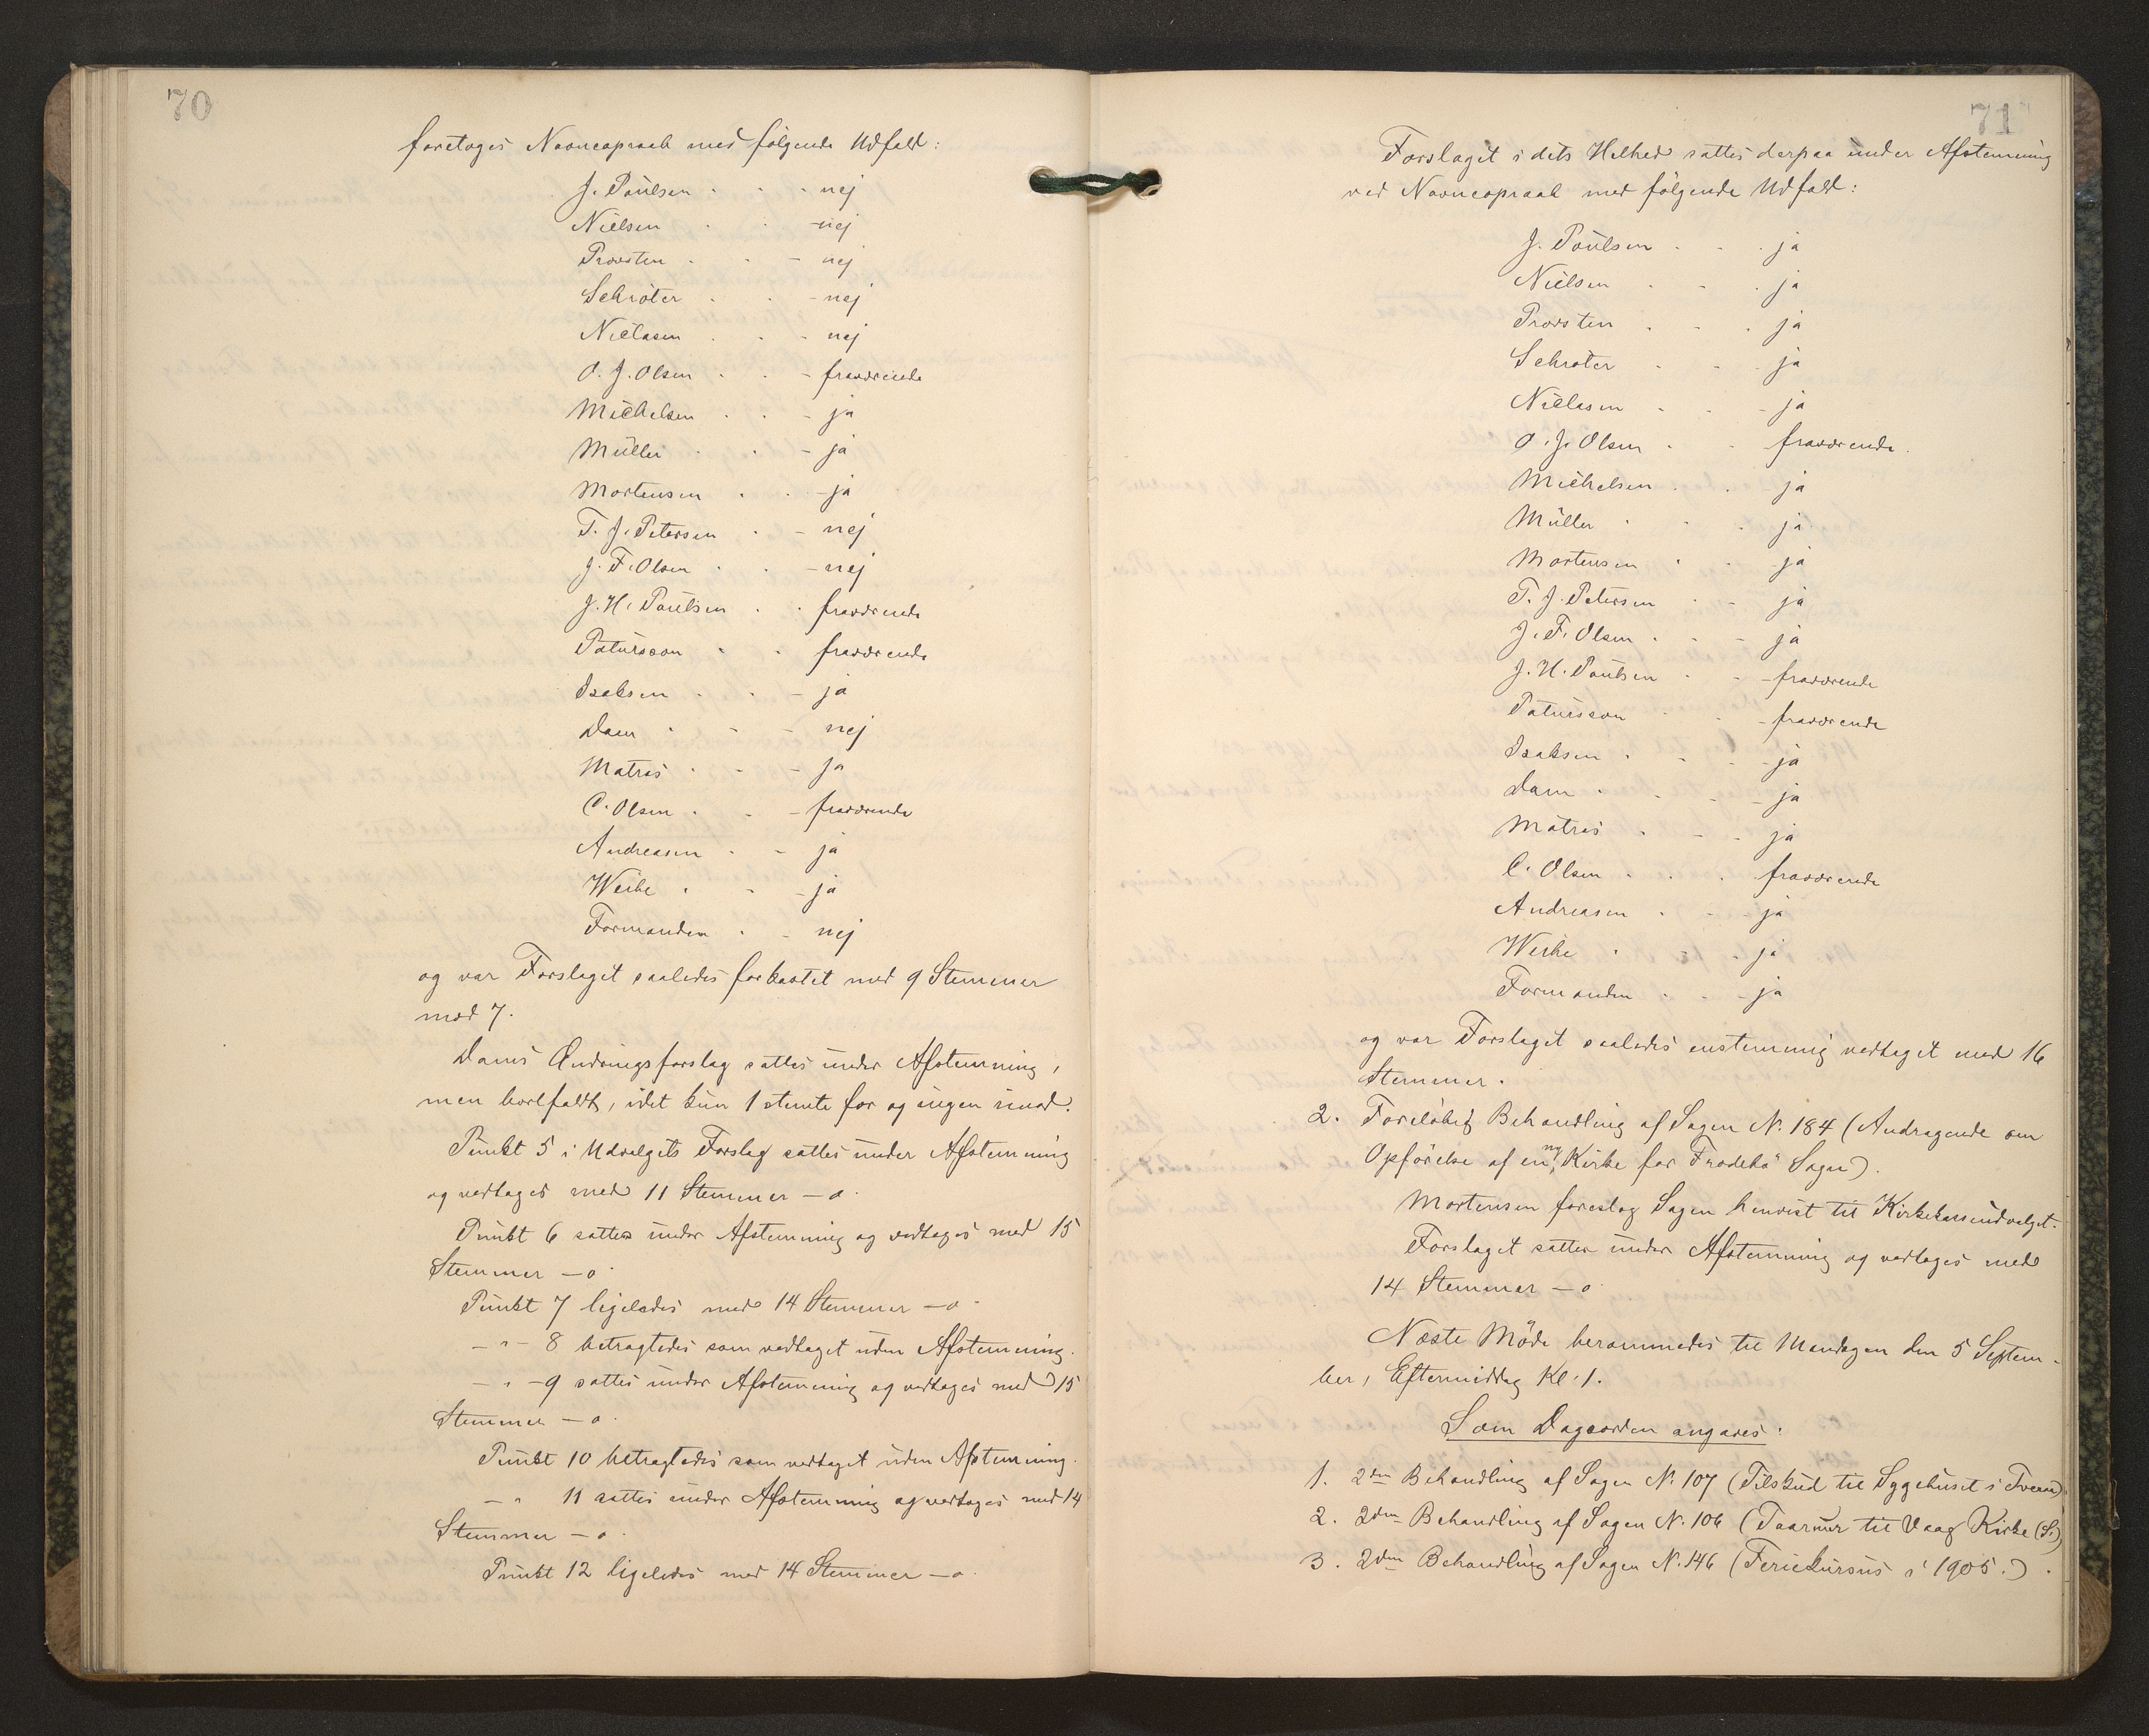 70
foretoges Navneopraab med følgende Udfald:
J. Poulsen - nej
Nielsen - nej
Provsten - nej
Schrøter - nej
Niclasen - nej
O. J. Olsen - fraværende
Michelsen - ja
Müller - ja
Mortensen - ja
T. J. Petersen - nej
J. F. Olsen - nej
J. H. Poulsen - fraværende
Patursson - fraværende
Isaksen - ja
Dam - nej
Matras - ja
C. Olsen - fraværende
Andreasen - ja
Weihe - ja
Formanden - nej
og var Forslaget saaledes forkastet med 9 Stemmer
mod 7.
Dams Ændringsforslag sattes under Afstemning,
men bortfaldt, idet kun 1 stemte for og ingen imod.
Punkt 5 i Udvalgets Forslag sattes under Afstemning
og vedtoges med 11 Stemmer - o.
Punkt 6 sattes under Afstemning og vedtoges med 15
Stemmer - o.
Punkt 7 ligeledes med 14 Stemmer - o.
- " - 8 betragtedes som vedtaget uden Afstemning.
- " - 9 sattes under Afstemning og vedtoges med 15
Stemmer - o.
Punkt 10 betragtedes som vedtaget uden Afstemning.
- " 11 sattes under Afstemning og vedtoges med 14
Stemmer - o.
Punkt 12 ligeledes med 14 Stemmer - o.
71
Forslaget i dets Helhed sattes derpaa under Afstemning
ved Navneopraab med følgende Udfald:
J. Poulsen - ja
Nielsen - ja
Provsten - ja
Schrøter - ja
Niclasen - ja
O. J. Olsen - fraværende.
Michelsen - ja
Müller - ja
Mortensen - ja
T. J. Petersen - ja
J. F. Olsen - ja
J. H. Poulsen - fraværende
Patursson - fraværende
Isaksen - ja
Dam - ja
Matras - ja
C. Olsen - fraværende
Andreasen - ja
Weihe - ja
Formanden - ja
og var Forslaget saaledes enstemmig vedtaget med 16
Stemmer.
2. Foreløbig Behandling af Sagen N. 184 (Andragende om
Opførelse af en ny Kirke for Frodebø Sogn).
Mortensen foreslog Sagen henvist til Kirkekasseudvalget.
Forslaget sattes under Afstemning og vedtoges med
14 Stemmer - o.
Næste Møde berammedes til Mandagen den 5 Septem-
ber, Eftermiddag Kl. 1.
Som Dagsorden angaves:
1. 2den Behandling af Sagen N. 107 (Tilskud til Sygehuset i Tveraa)
2. 2den Behandling af Sagen N. 106 (Taarnur til Vaag Kirke (S.)
3. 2den Behandling af Sagen N. 146 (Feriekursus i 1905.).